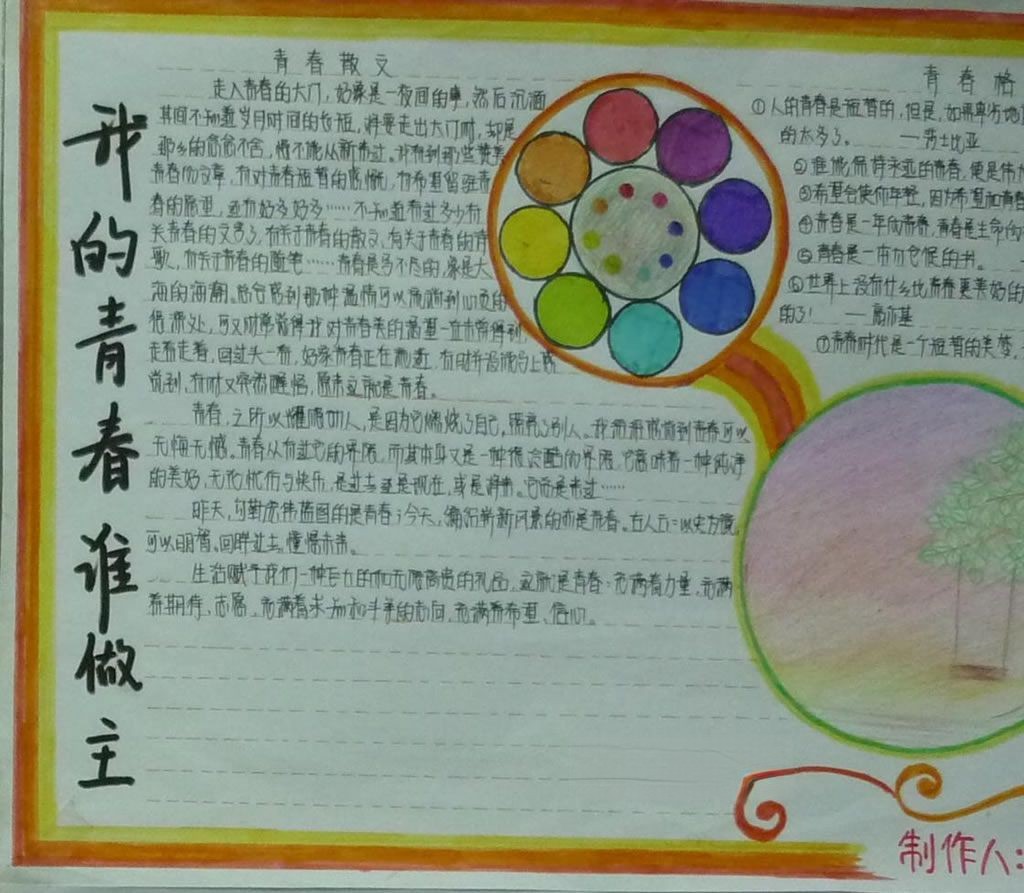 我的青春谁做主
青春散文
走入青春的大门，好像是一夜间的事，然后沉湎
其间不知道岁月时间的长短，将要走出大门时，却是
那么的贪恋不舍，恨不能从新来过。我看到那些赞美
青春的文章，有对青春短暂的感慨，有希望留驻青
春的愿望，还有好多好多……不知道有过多少有
关青春的文字了，有关于青春的散文，有关于青春的诗
歌，有关于青春的随笔……青春是写不尽的，像是大
海的海潮。总会感到那种温情可以流淌到心灵的
很深处，可又时常觉得我对青春美的渴望一直未曾得到，
走着走着，回过头一看，好像青春正在靠近，有时并没能马上感
觉到，有时又突然醒悟，原来这就是青春。
青春，之所以璀璨动人，是因为它燃烧了自己，照亮了别人。我深深感悟到青春可以
无悔无憾。青春从有过它的界限，而其本身又是一种很含酷的界限，它意味着一种纯净
的美好，无论忧伤与快乐，是过去还是现在，或是将来。它而是来过……
昨天，勾勒宏伟蓝图的是青春；今天，描绘崭新风景的亦是青春。在人云：以史为镜，
可以明智。回眸过去，憧憬未来。
生活赋予我们一种巨大的和无限高贵的礼品，这就是青春：充满着力量，充满
着期待、志愿，充满着求知和斗争的志向，充满着希望、信心。
青春格
①人的青春是短暂的，但是，如果卑劣地
的太多了。——莎士比亚
②谁能保持永远的青春，便是伟大
③希望会使你年轻，因为希望和青春
④青春是一年成青春，青春是生命的
⑤青春是一本力仓促的书。
⑥世界上没有什么比青春更美好的
的了！——高尔基
⑦青春时代是一个短暂的美梦，
制作人：